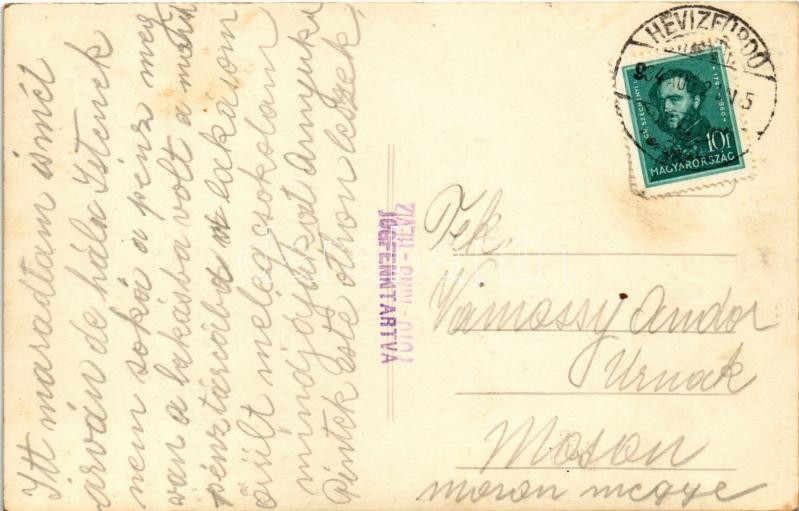 Itt maradtam ismét
árván de hála Istenek
nem soká a pénz meg
van a lakásba volt a másik
pénztárcába a lakásom
őrült meleg csokolom
mindnyájukat Annyuka
Péntek este othon leszek
JOGFENNTARTVA
FOTO - KINO - HÉVIZ
HÉVIZFÜRDŐ
GR. SZÉCHENYI I.
10f
MAGYARORSZÁG
Tek.
Vámossy Andor
Urnak
Moson
moson megye